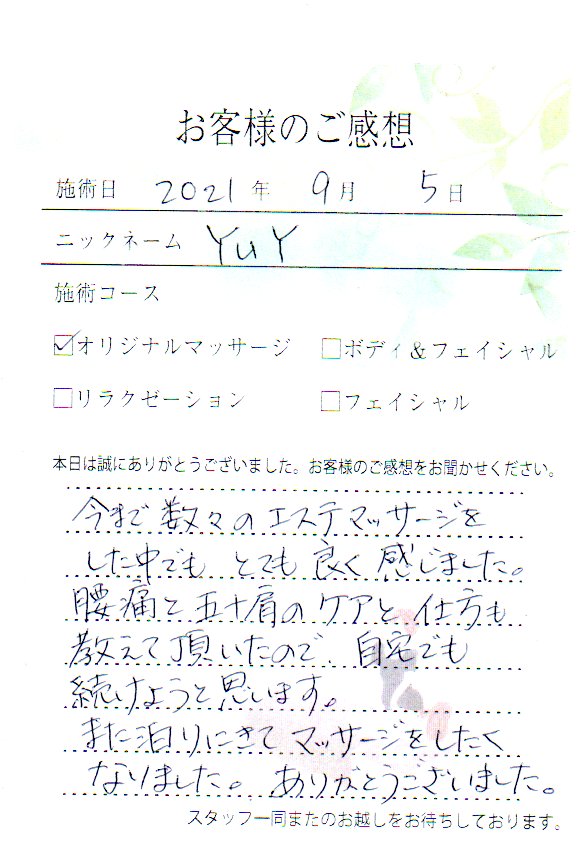 お客様のご感想
施術日 2021年 9月 5日
ニックネーム YuY
施術コース
☑オリジナルマッサージ □ボディ&フェイシャル
□リラクゼーション □フェイシャル
本日は誠にありがとうございました。お客様のご感想をお聞かせください。
今まで数々のエステマッサージを
した中でも とても良く感じました。
腰痛と五十肩のケアと仕方も
教えて頂いたので、自宅でも
続けようと思います。
また泊りにきてマッサージをしたく
なりました。ありがとうございました。
スタッフ一同またのお越しをお待ちしております。